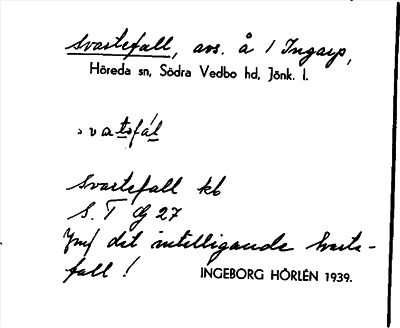 Svartsfall, avs. å 1 Ingarp,
Höreda sn, Södra Vedbo hd, Jönk. l.
svatsfál
Svartsfall kb
S. T Cg 27
Jmf det intelligande Svarts-
fall!
INGEBORG HÖRLÉN 1939.